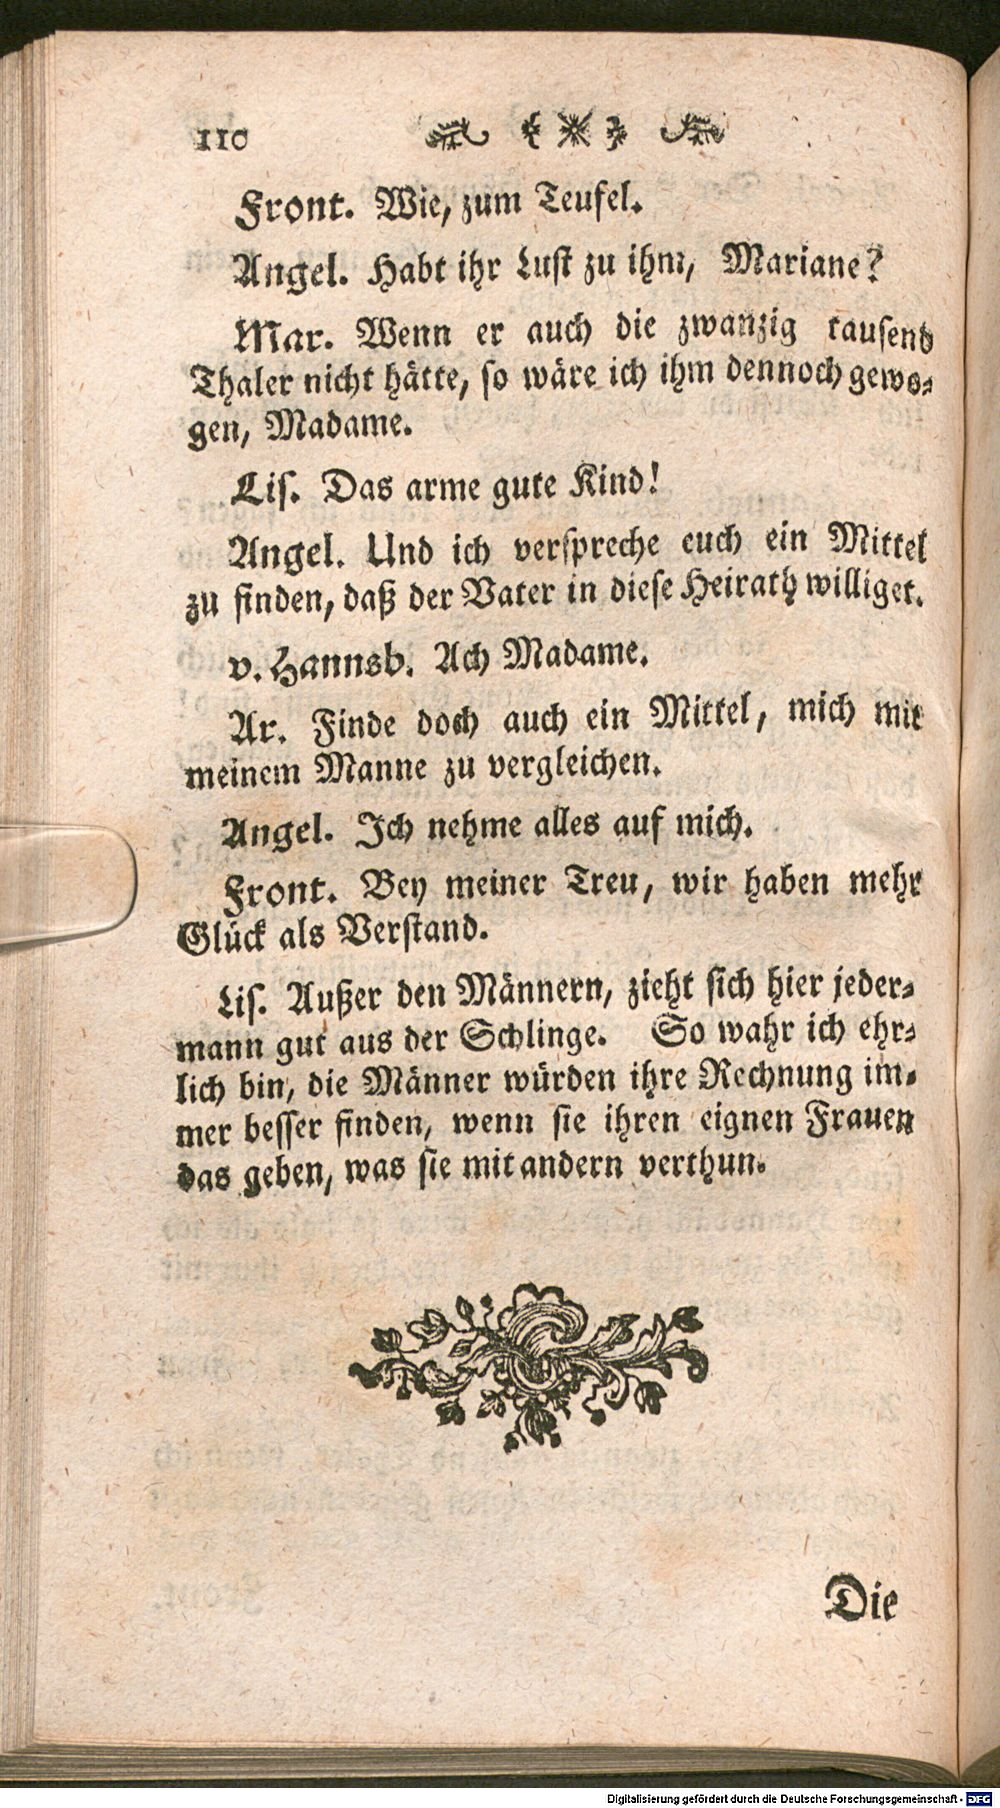 110
Front. Wie, zum Teufel.
Angel. Habt ihr Lust zu ihm, Mariane?
Mar. Wenn er auch die zwanzig tausend
Thaler nicht hätte, so wäre ich ihm dennoch gewo-
gen, Madame.
Lis. Das arme gute Kind!
Angel. Und ich verspreche euch ein Mittel
zu finden, daß der Vater in diese Heirath williget.
v. Hannsb. Ach Madame.
Ar. Finde doch auch ein Mittel, mich mit
meinem Manne zu vergleichen.
Angel. Ich nehme alles auf mich.
Front. Bey meiner Treu, wir haben mehr
Glück als Verstand.
Lis. Außer den Männern, zieht sich hier jeder-
mann gut aus der Schlinge. So wahr ich ehr-
lich bin, die Männer würden ihre Rechnung im-
mer besser finden, wenn sie ihren eignen Frauen
das geben, was sie mit andern verthun.
Die
Digitalisierung gefördert durch die Deutsche Forschungsgemeinschaft - DFG